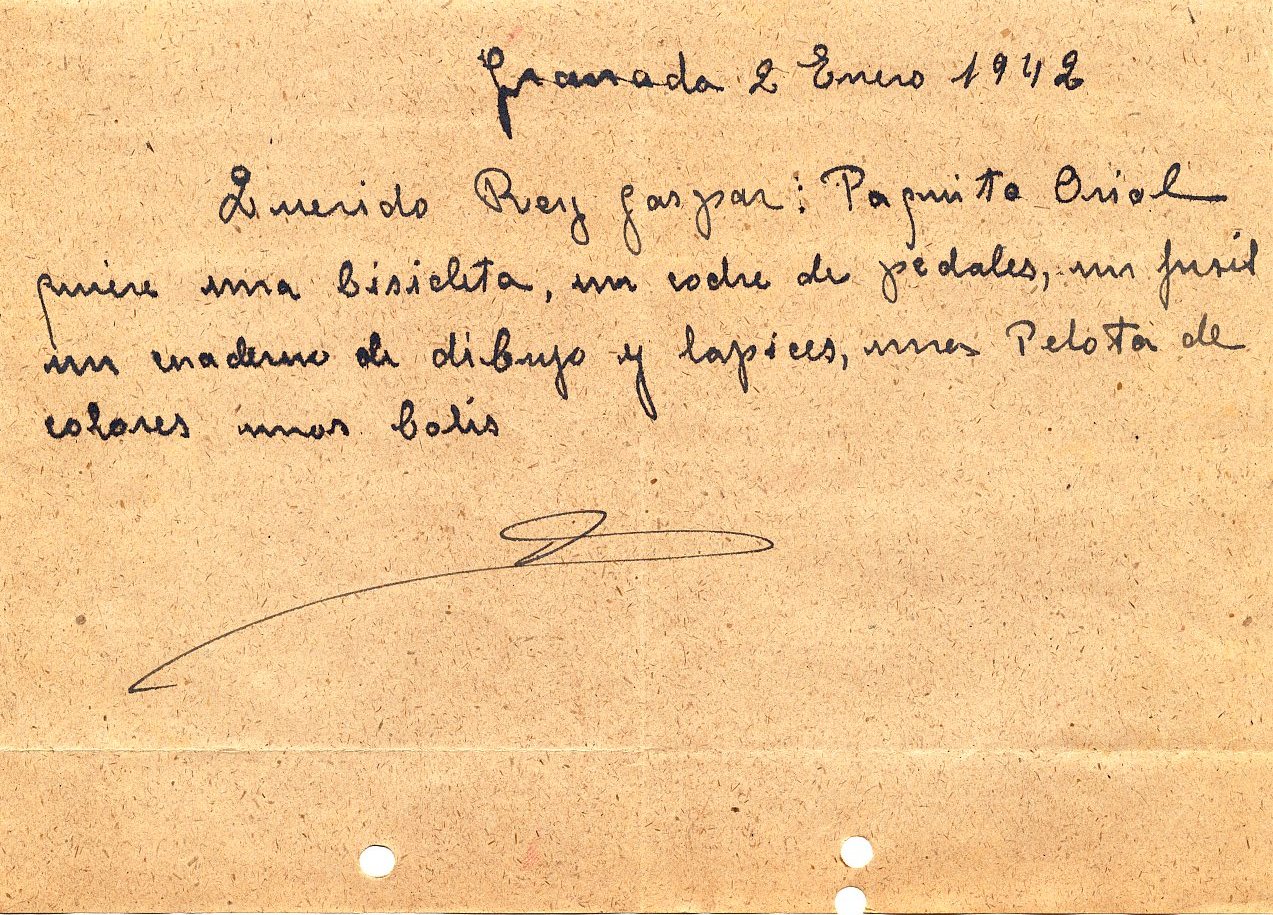 Granada 2 Enero 1942
Querido Rey Gaspar: Paquito Oriol
quiere una bisicleta, un coche de pedales, un fusil
un cuaderno de dibujo y lapices, una Pelota de
colores unos bolis